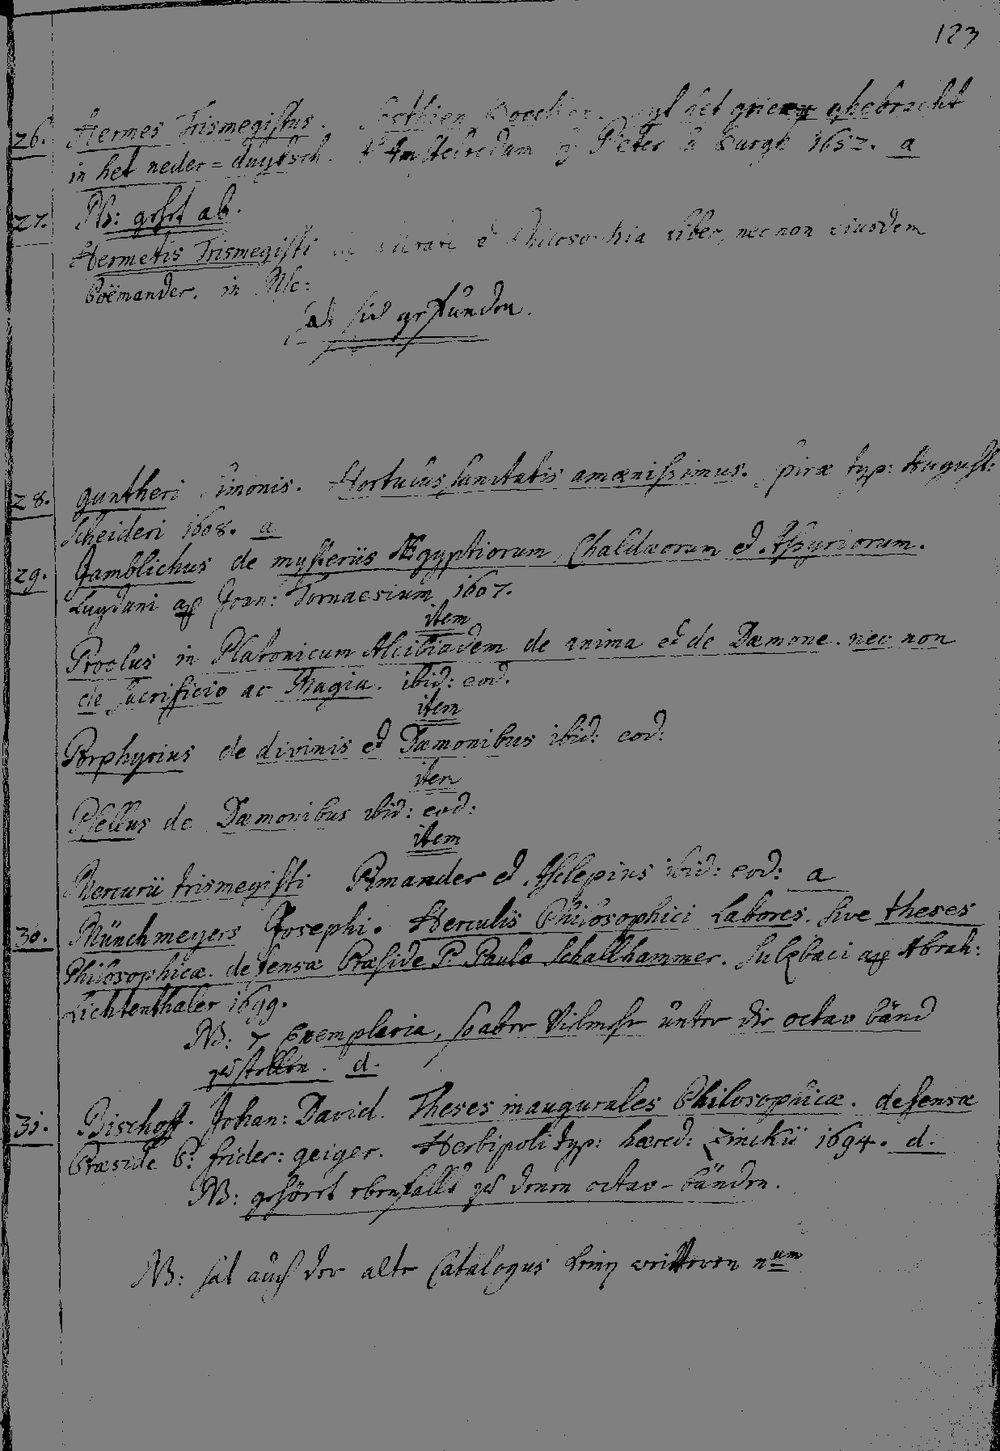 123
26. Hermes Trismegistus. Sesthien Boecken. uyt het griecx ghebracht
in het neder=duytsch. t'Amsterdam by Peter la Burgh 1652. a
27. NB: gehet ab.
Hermetis Trismegisti et Philosophia liber, nec non eiusdem
Poëmander. in Msc:
hat sich gefunden.
28. Guntheri Simonis. Hortulus sanitatis amœnissimus. Spiræ typ: August:
Scheideri 1608. a
29. Jamblichus de mysteriis Ægyptiorum, Chaldæorum et Assyriorum.
Lugduni ap Joan: Tornaesium 1607.
item
Proclus in Platonicum Alcibiadem de anima et de Dæmone. nec non
de Sacrificio ac Magia. ibid: eod.
item
Porphyrius de divinis et Dæmonibus ibid: eod:
item
Psellus de Dæmonibus ibid: eod:
item
Mercurii trismegisti Pimander et Asclepius ibid: eod: a
30. Münchmeyers Josephi. Herculis Philosophici Labores. sive theses
Philosophicæ. defensæ Præside P. Paulo Schallhammer. Sulzbaci ap Abrah:
Lichtenthaler 1699.
NB: 7 Exemplaria, so aber Vilmehr unter die octav bänd
zu stellen. d.
31. Bischoff. Johan: David. Theses inaugurales Philosophicæ. defensæ
Præside P: frider: geiger. Herbipoli typ: hæred: Zinckii 1694. d.
NB: gehöret ebenfalls zu denen octav-bänden.
NB: hat auch der alte Catalogus keine weitteren num